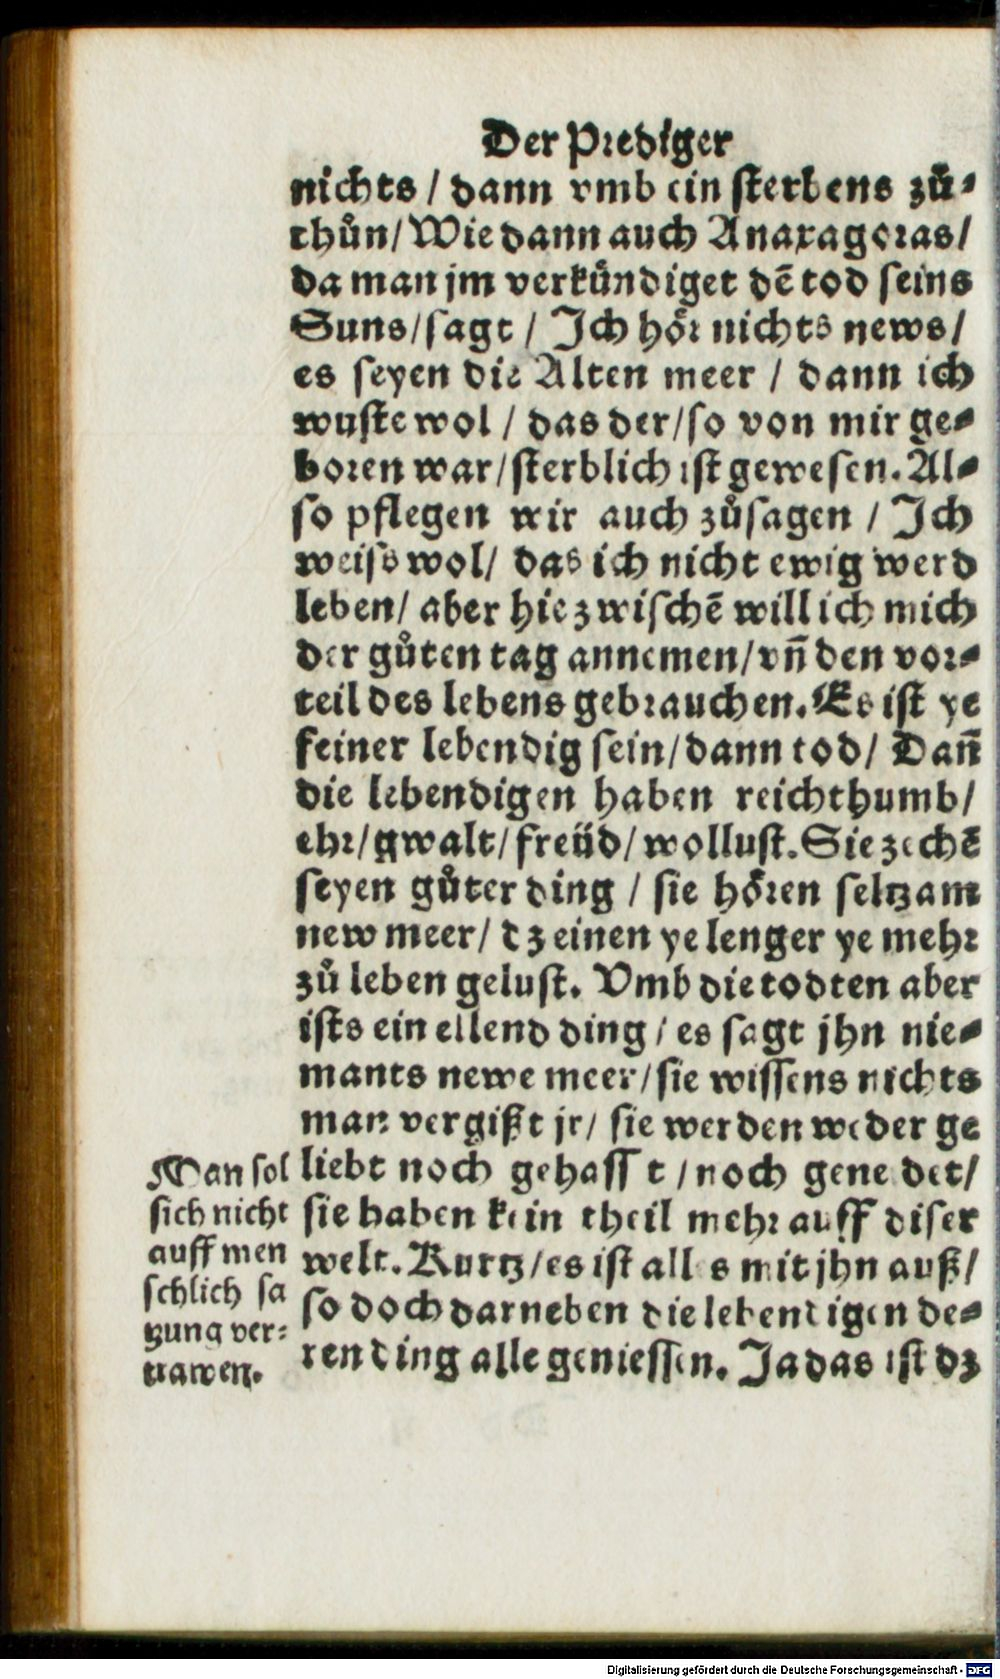 Der Prediger
nichts / dann vmb ein sterbens zů⸗
thůn/ Wie dann auch Anaxagoras/
da man jm verkündiget dē tod seins
Suns/ sagt / Ich hör nichts news/
es seyen die Alten meer / dann ich
wuste wol / das der/ so von mir ge⸗
boren war/ sterblich ist gewesen. Al⸗
so pflegen wir auch zůsagen / Ich
weiss wol/ das ich nicht ewig werd
leben/ aber hiezwischē will ich mich
der gůten tag annemen/ vn̄ den vor⸗
teil des lebens gebrauchen. Es ist ye
feiner lebendig sein/ dann tod/ Dan̄
die lebendigen haben reichthumb/
ehr/ gwalt/ freüd/ wollust. Sie zechē
seyen gůter ding / sie hören seltzam
new meer/ dz einen ye lenger ye mehr
zů leben gelust. Vmb die todten aber
ists ein ellend ding/ es sagt jhn nie⸗
mants newe meer/ sie wissens nichts
man vergißt jr/ sie werden weder ge
liebt noch gehasst / noch geneidet/
sie haben kein theil mehr auff diser
welt. Kurtz/ es ist alles mit jhn auß/
so doch darneben die lebendigen de⸗
ren ding alle geniessen. Ja das ist dz
Man sol
sich nicht
auff men
schlich sa
tzung ver⸗
trawen.
Digitalisierung gefördert durch die Deutsche Forschungsgemeinschaft - DFG